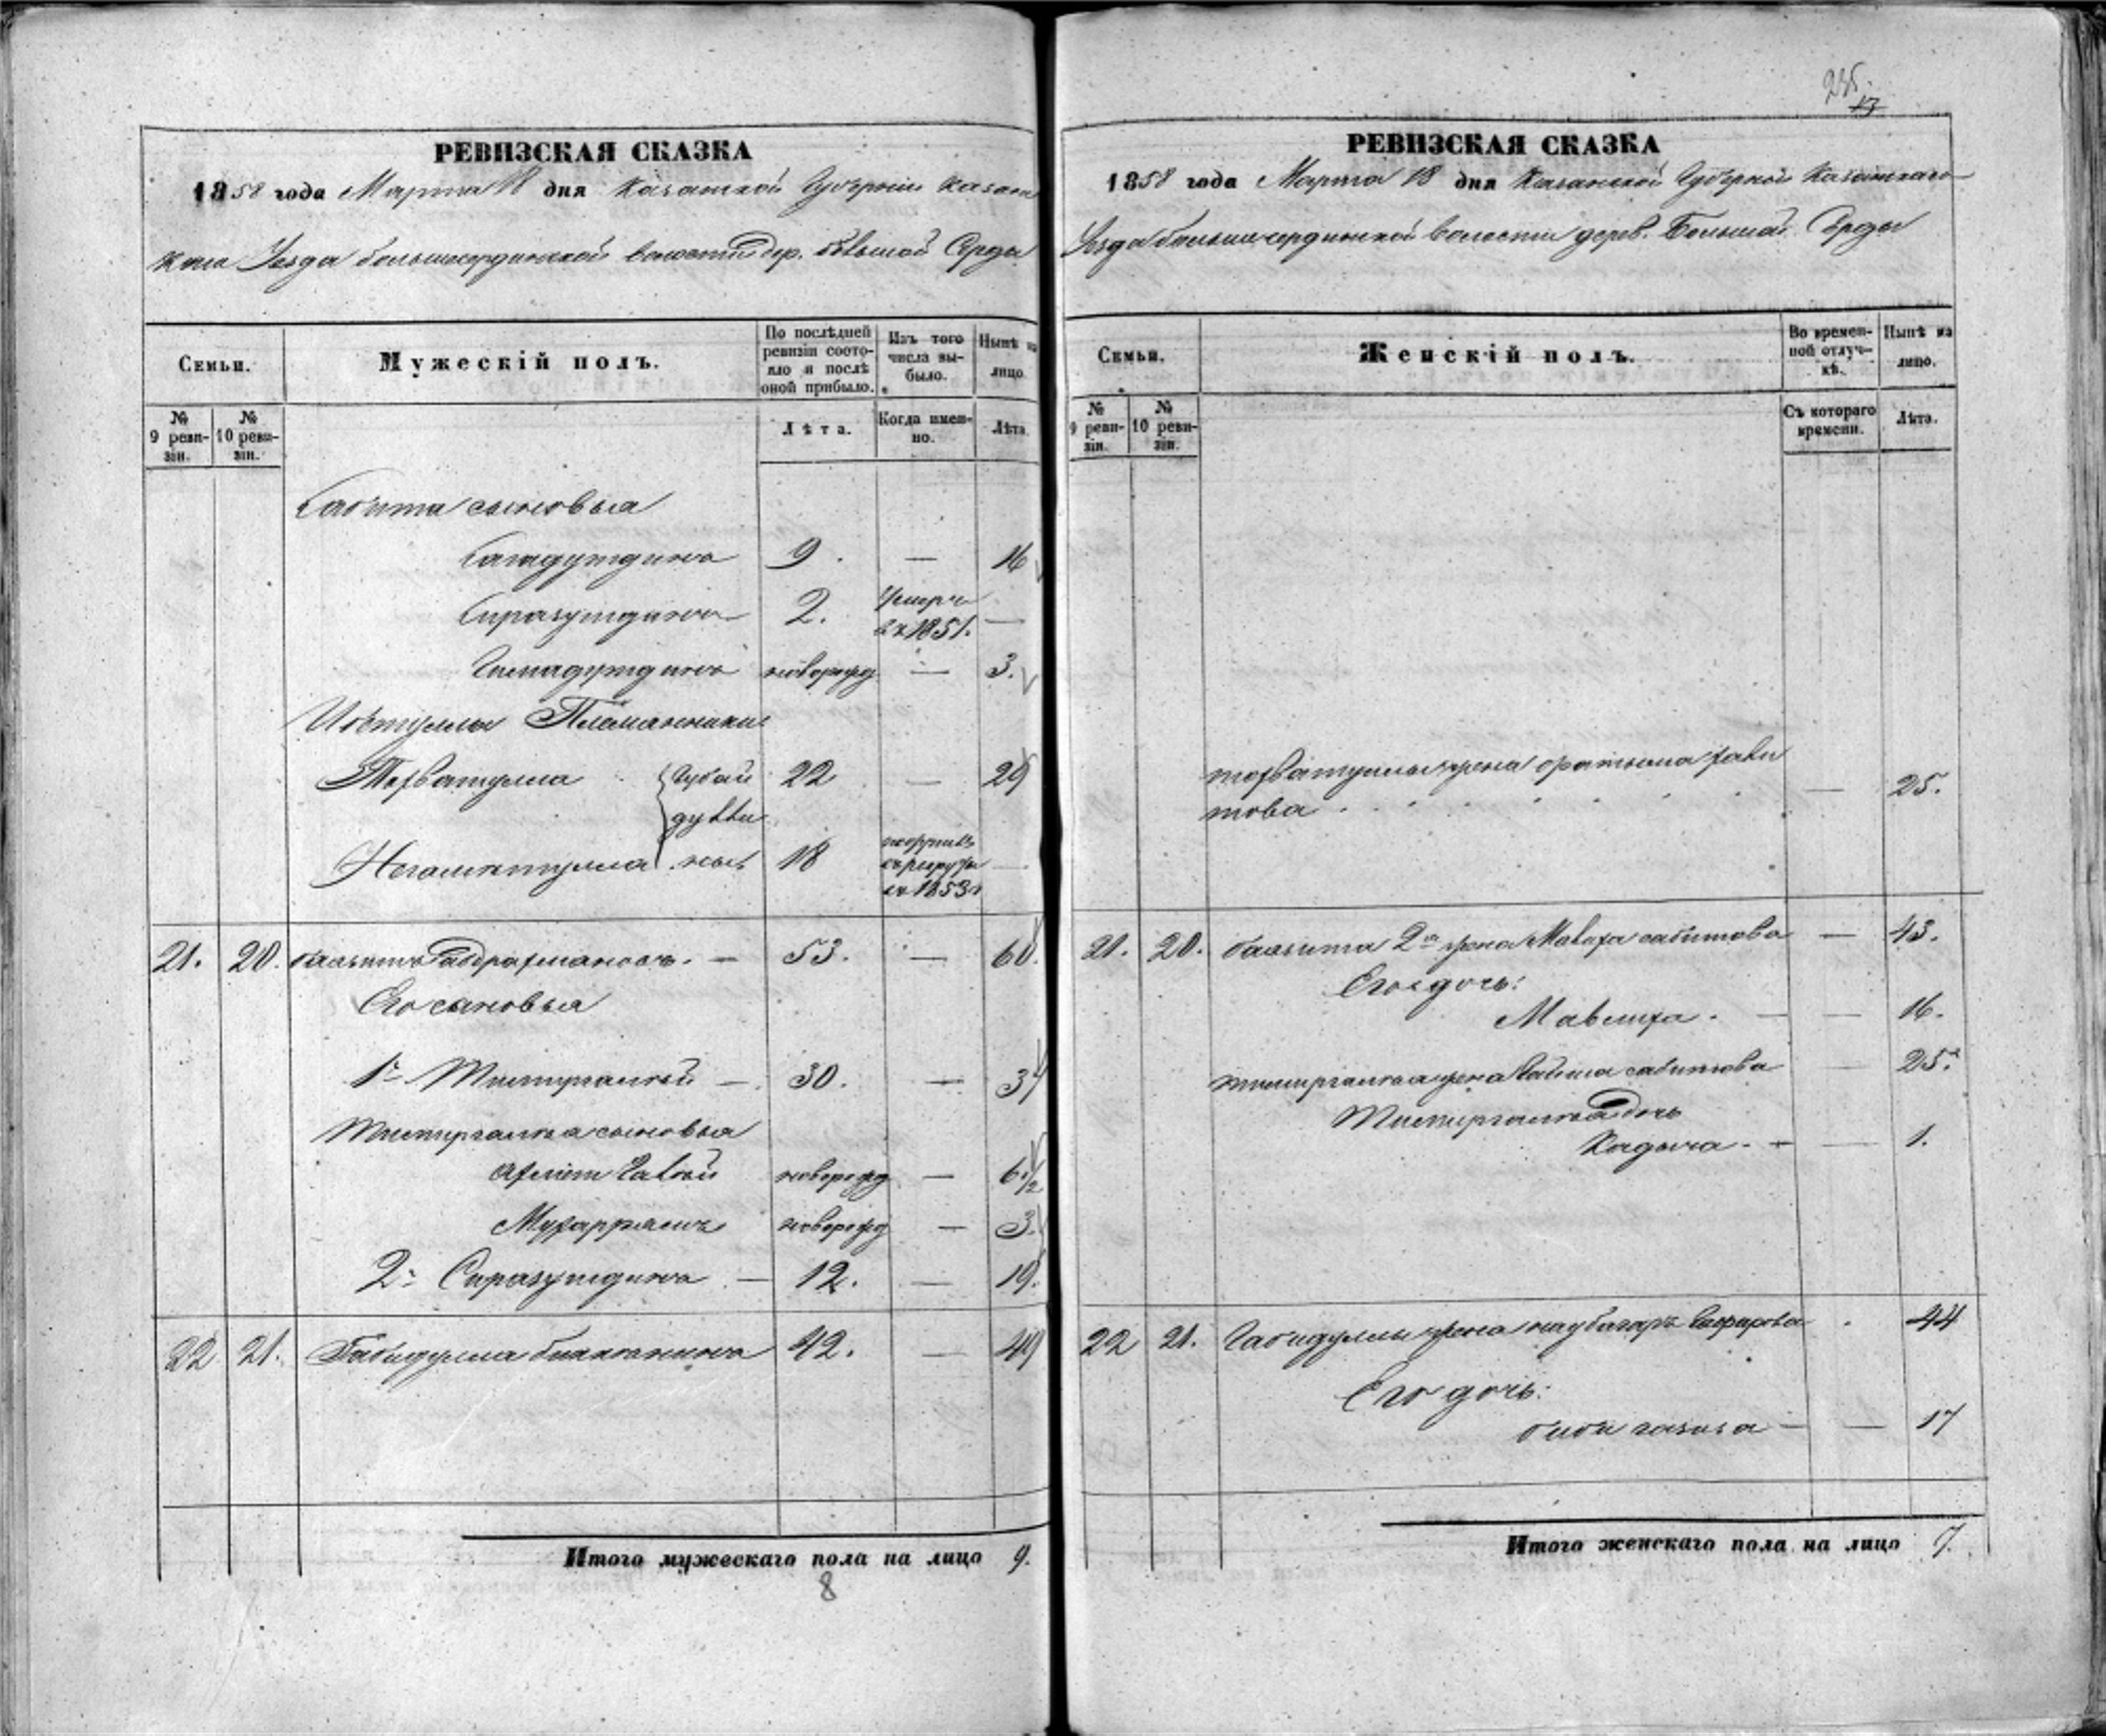 РЕВИЗСКАЯ СКАЗКА
1858 года Марта 18 дня Казанской Губернии Казан
скаго Уезда большесердинской волости дер. большой Серды
Семьи.
Мужескій полъ.
По послѣдней ревизіи состояло и послѣ оной прибыло.
Изъ того числа выбыло.
Нынѣ на лицо
№ 9 ревизіи.
№ 10 ревизіи.
Лѣта.
Когда именно.
Лѣта
Сабита сыновья
Сагадутдинъ 9. — 16
Сиразутдинъ 2. Умеръ въ 1851. —
Гимадутдинъ новорожд — 3.
Племянники
Тохватулла 22 — 29
Негаметулла 18 въ 1853 —
21. 20. Баязитъ Габдрахмановъ. — 53. — 60.
Его сыновья
1й Тимиргалей — 30. — 37
Тимиргалея сыновья
новорожд — 6 1/2
Мухаррямъ новорожд — 3.
2й Сиразутдинъ — 12. — 19.
22 21. Габидулла 42. — 49
Итого мужескаго пола на лицо 9.
8
235.
13
РЕВИЗСКАЯ СКАЗКА
1858 года Марта 18 дня Казанской Губернии Казанскаго
Уезда большесердинской волости дерев. Большой Серды
Семьи.
Женскій полъ.
Во временной отлучкѣ.
Нынѣ на лицо.
№ 9 ревизіи.
№ 10 ревизіи.
Съ котораго времени.
Лѣта.
тохватуллы жена
това — 25.
21. 20. баязита 2я жена Мавлиха сабитова — 43.
Его дочь:
Мавлиха. — — 16.
тимиргалея жена сабитова — 25.
Тимиргалея дочь
Кадыча. — — 1.
22 21. Габидуллы жена 44
Его дочь:
биби газиза — — 17
Итого женскаго пола на лицо 7.